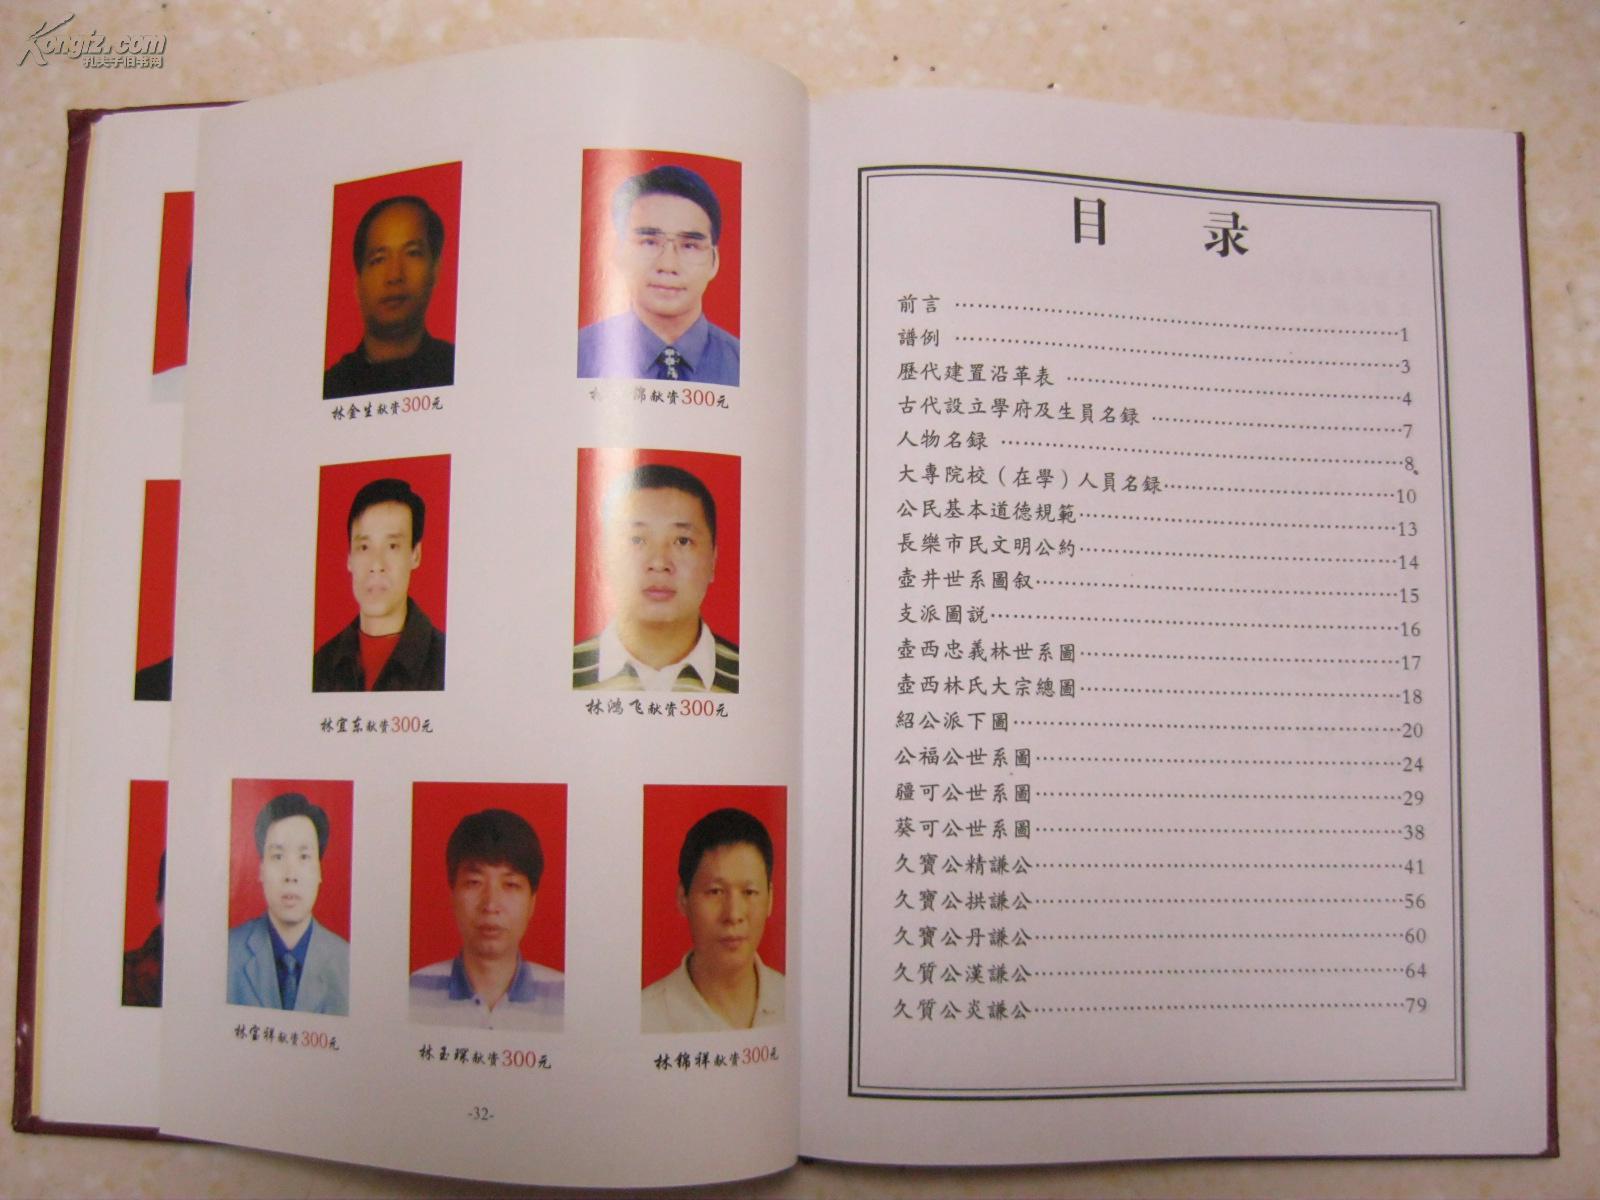 Kongfz.com
孔夫子旧书网
林金生献资300元
林 锦献资300元
林宜东献资300元
林鸿飞献资300元
林宝祥献资300元
林玉琛献资300元
林锦祥献资300元
-32-
目 录
前言 ……………………………1
譜例 ……………………………3
歷代建置沿革表 ……………………………4
古代設立學府及生員名録 ……………………………7
人物名録 ……………………………8
大專院校（在學）人員名録……………………………10
公民基本道德規範……………………………13
長樂市民文明公約……………………………14
壺井世系圖叙……………………………15
支派圖説……………………………16
壺西忠義林世系圖……………………………17
壺西林氏大宗總圖……………………………18
紹公派下圖……………………………20
公福公世系圖……………………………24
疆可公世系圖……………………………29
葵可公世系圖……………………………38
久寶公精謙公……………………………41
久寶公拱謙公……………………………56
久寶公丹謙公……………………………60
久質公漢謙公……………………………64
久質公炎謙公……………………………79